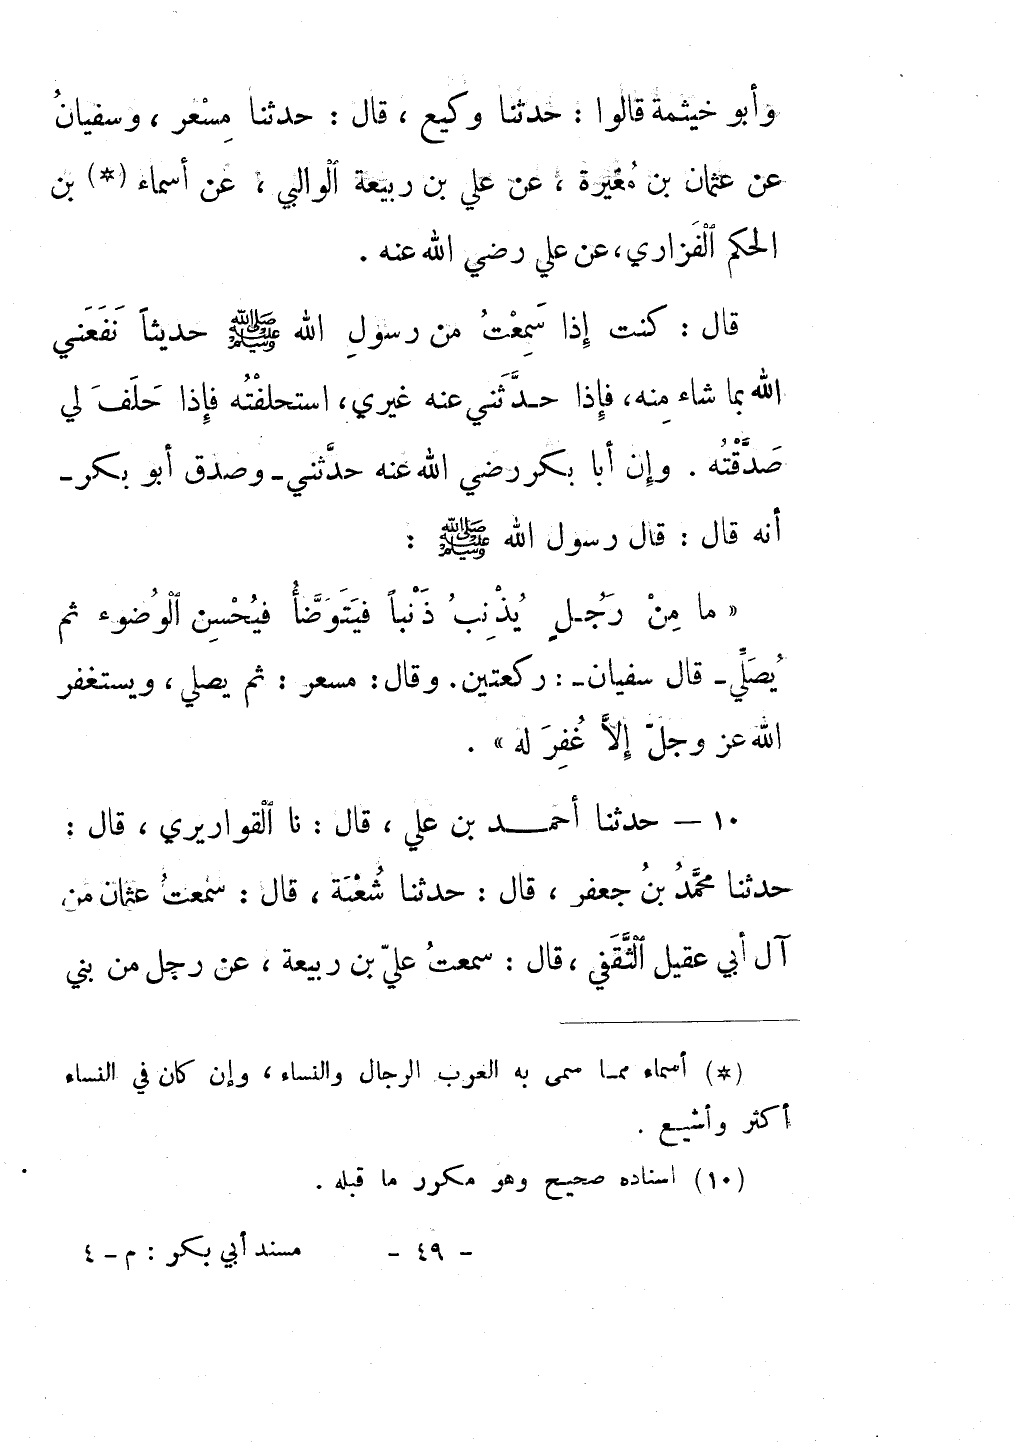 وأبو خيثمة قالوا : حدثنا وكيع ، قال : حدثنا مِسْعر ، وسفيانُ
عن عثمان بن مُغيرة ، عن علي بن ربيعة الوالبي ، عن أسماء (*) بن
الحكم الفَزاري ، عن علي رضي الله عنه .
قال : كنت إذا سَمِعْتُ من رسولِ الله ﷺ حديثاً نَفَعَني
الله بما شاء مِنه ، فإذا حدَّثَني عنه غيري ، استحلفْتُه فإذا حَلَفَ لي
صَدَّقْتُه . وإن أبا بكر رضي الله عنه حدَّثني ـ وصدق أبو بكر ـ
أنه قال : قال رسول الله ﷺ :
« ما مِنْ رَجُلٍ يُذْنِبُ ذَنْباً فيَتَوَضَّأُ فيُحْسِن الوُضوء ثم
يُصَلِّي ـ قال سفيان ـ : ركعتين . وقال : مسعر : ثم يصلي ، ويستغفر
الله عز وجلّ إلاَّ غُفِرَ له » .
١٠ ـ حدثنا أحمد بن علي ، قال : نا القواريري ، قال :
حدثنا محمَّدُ بنُ جعفر ، قال : حدثنا شُعْبَة ، قال : سمعتُ عثمان من
آل أبي عقيل الثَّقَفي ، قال : سمعتُ عليّ بن ربيعة ، عن رجل من بني
(*) أسماء مما سمى به العرب الرجال والنساء ، وإن كان في النساء
أكثر وأشيع .
(١٠) اسناده صحيح وهو مكرر ما قبله .
- ٤٩ - مسند أبي بكر : م - ٤